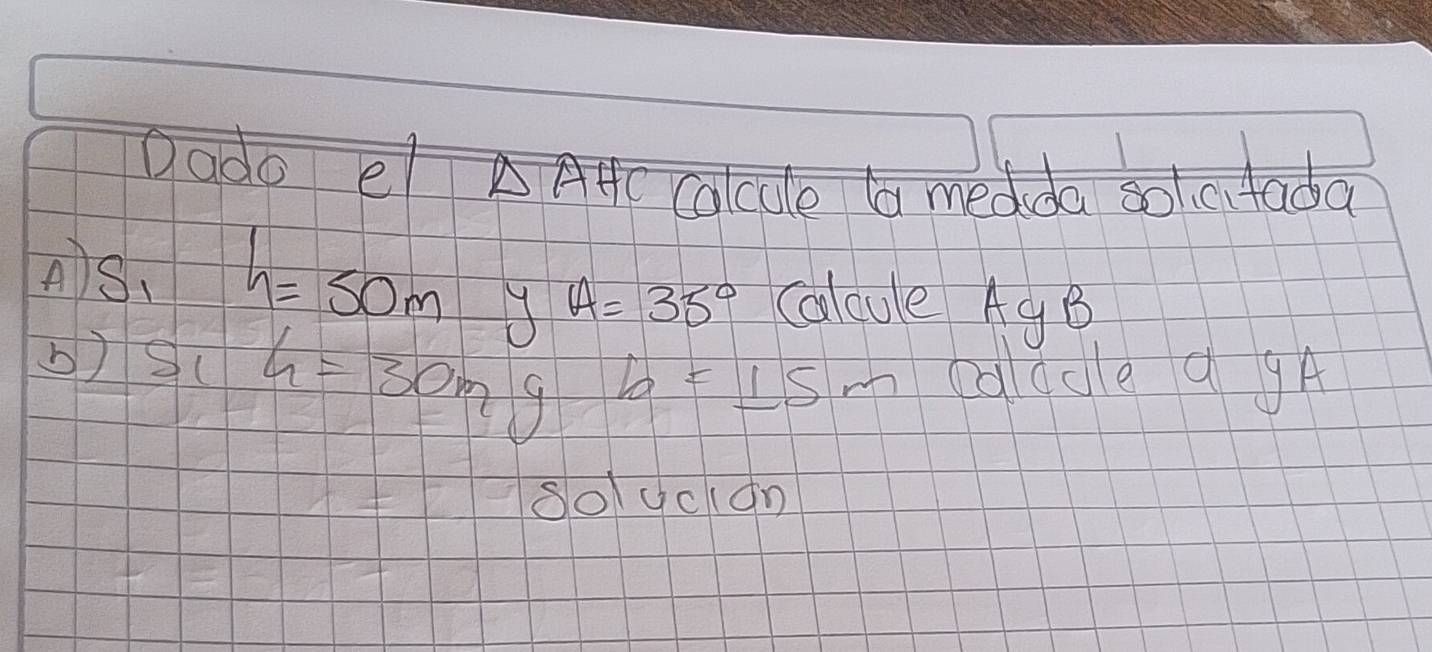 Dado el Δ AHC calcule la medida solicitada
A) Si h = 50m y A = 35° calcule A y B
b) Si h = 30m y b = 15 m calcule a y A
Solucion